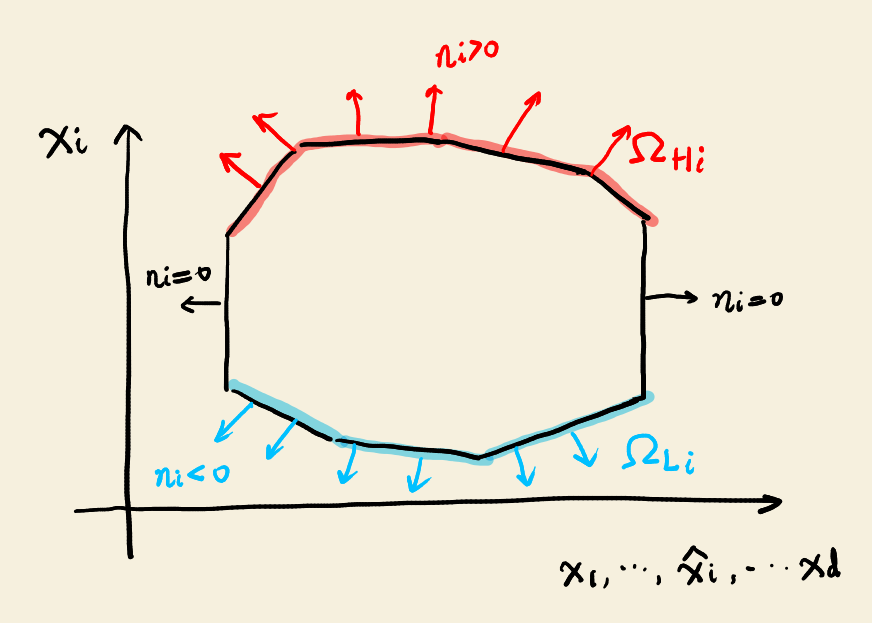 nᵢ>0
xᵢ
Ω_Hᵢ
nᵢ=0
nᵢ=0
nᵢ<0
Ω_Lᵢ
x₁, ⋯, x̂ᵢ, ⋯ x_d